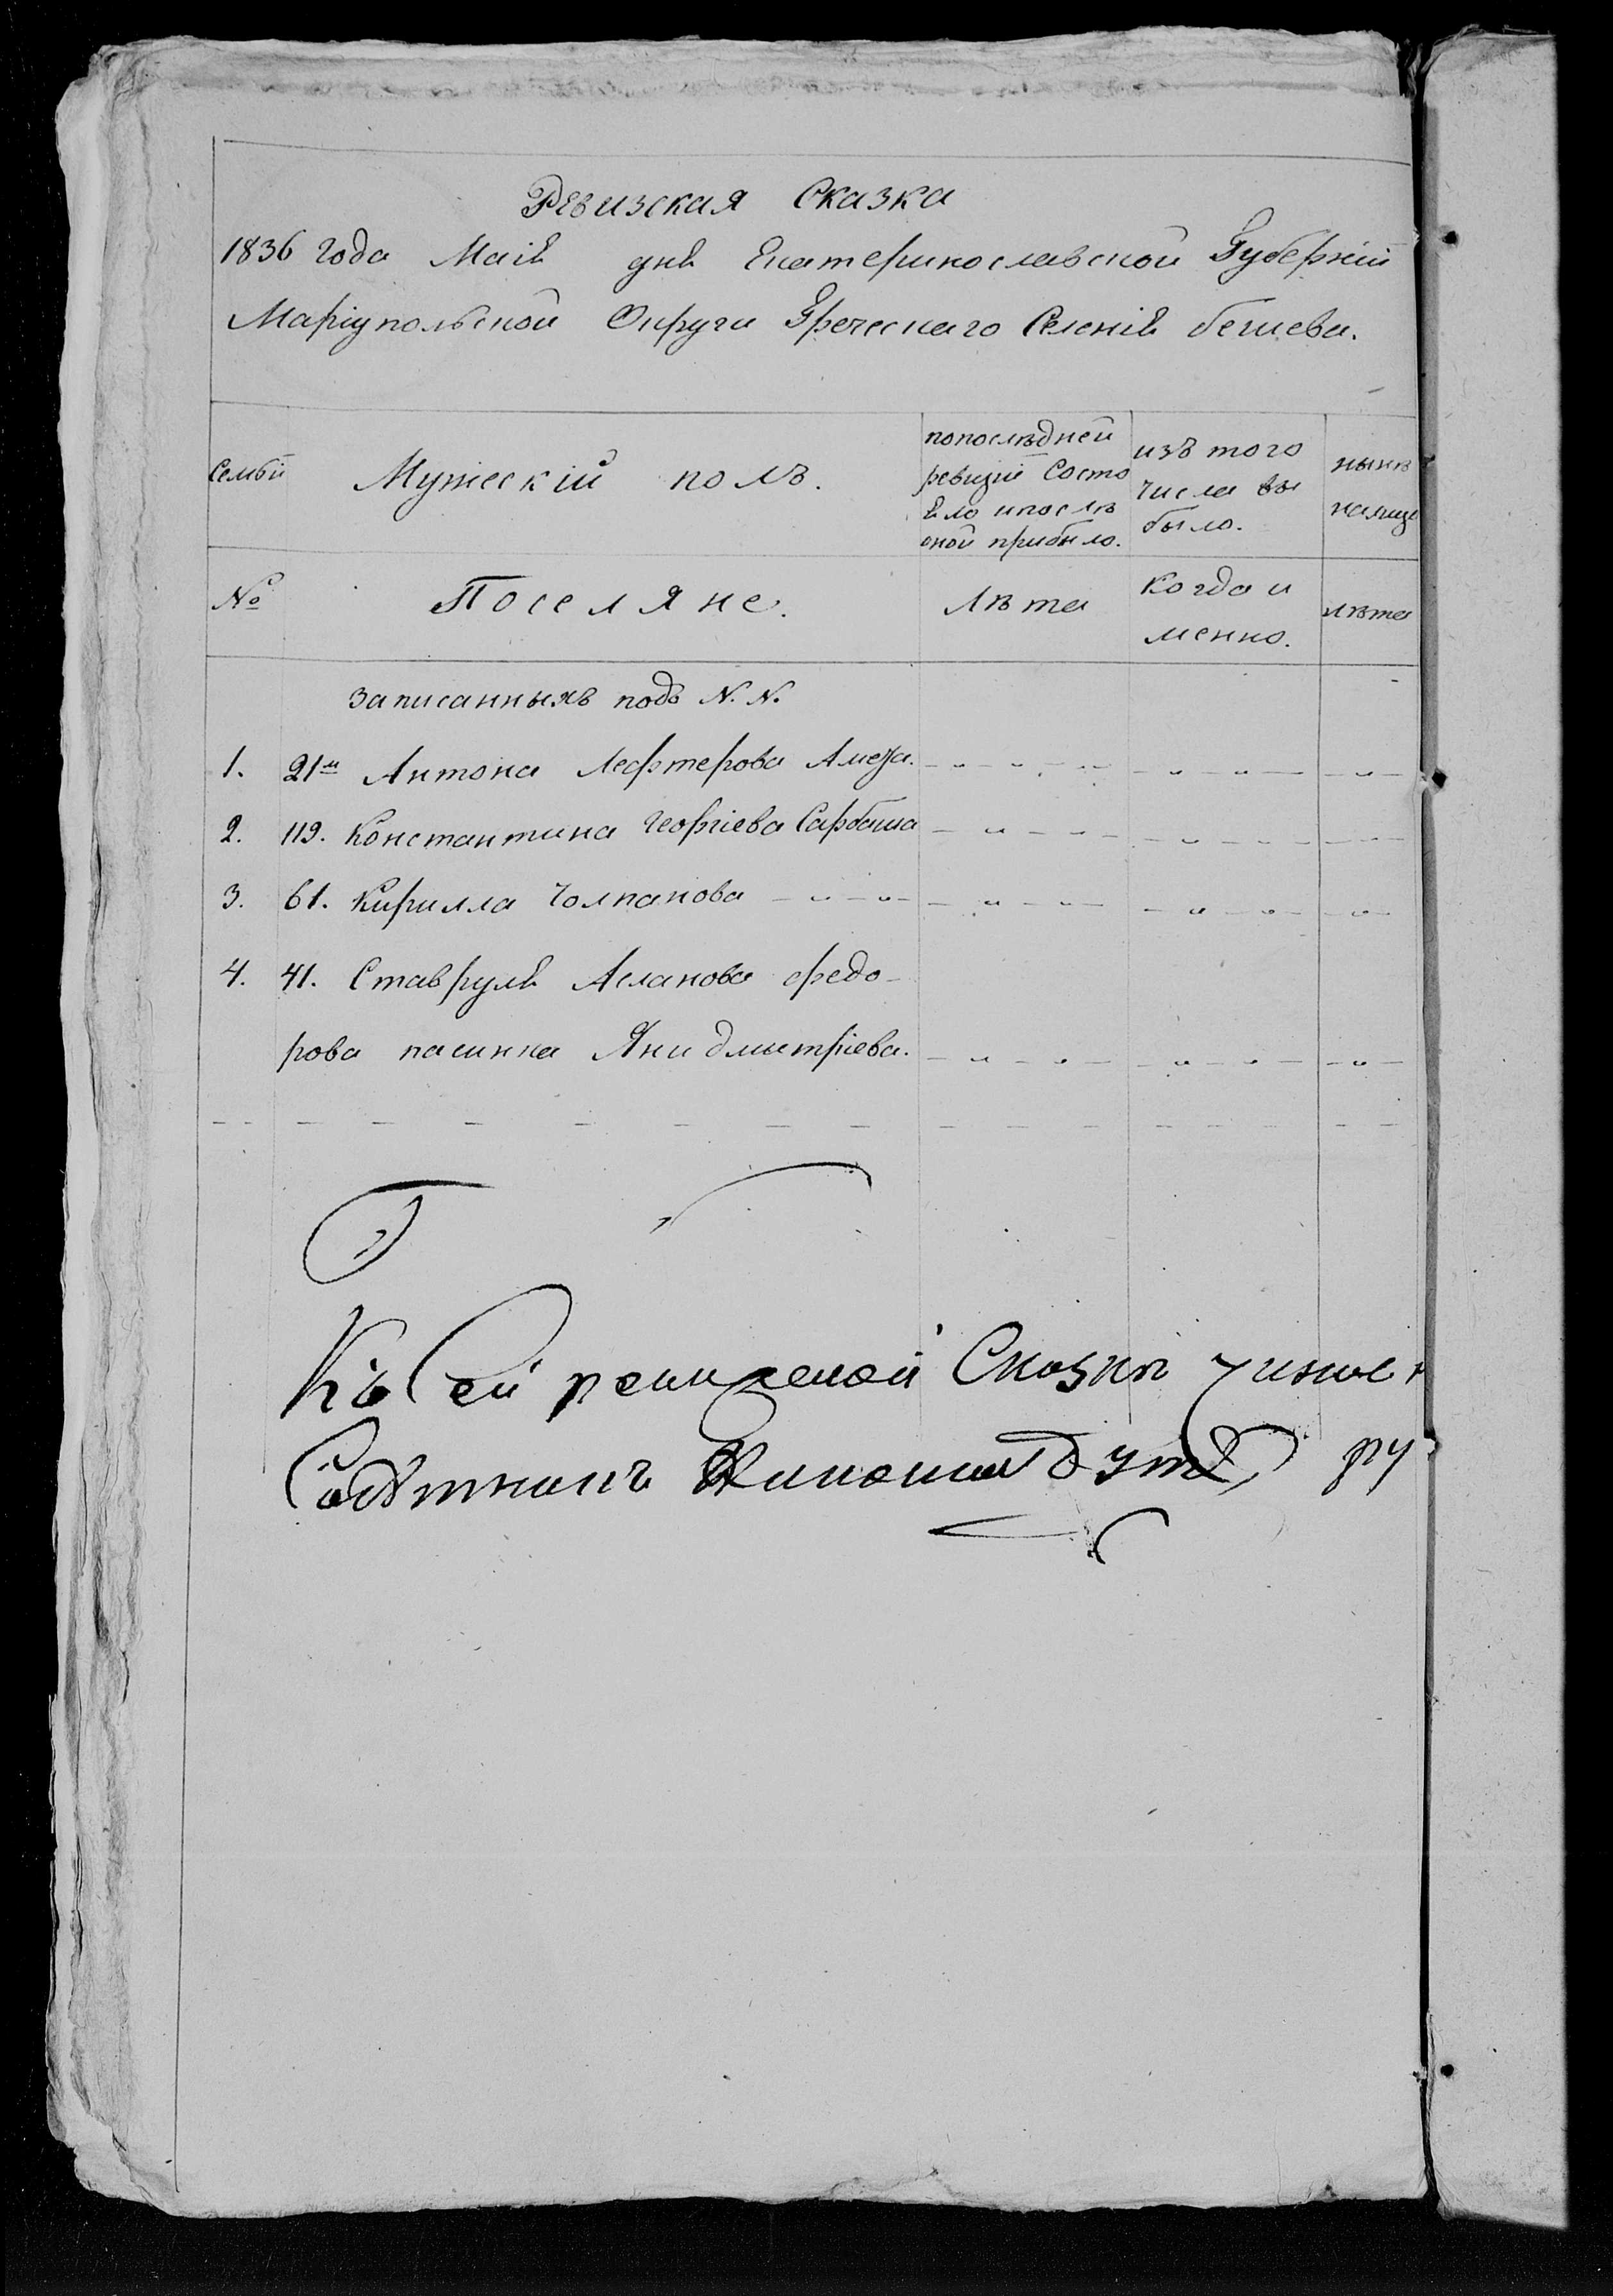 Ревизская Сказка
1836 года Маія дня Екатеринославской Губерніи
Маріупольской Округи Греческаго Селенія бешева.
Семьи
Мужескій полъ.
попослѣдней
ревизіи Состо
яло и послѣ
оной прибыло.
изъ того
числа вы
было.
нынѣ
налице
№
Поселяне.
Лѣта
Когда и
менно.
лѣта
записанныхъ подъ N. N.
1. 21м Антона Лефтерова
2. 119. Константина Георгіева Сарбаша
3. 61. Кирилла Чолпанова
4. 41. Ставруля Асланова Федо-
рова пасинка Яни дмытріева.
Къ Сей ревизской Сказки
ру